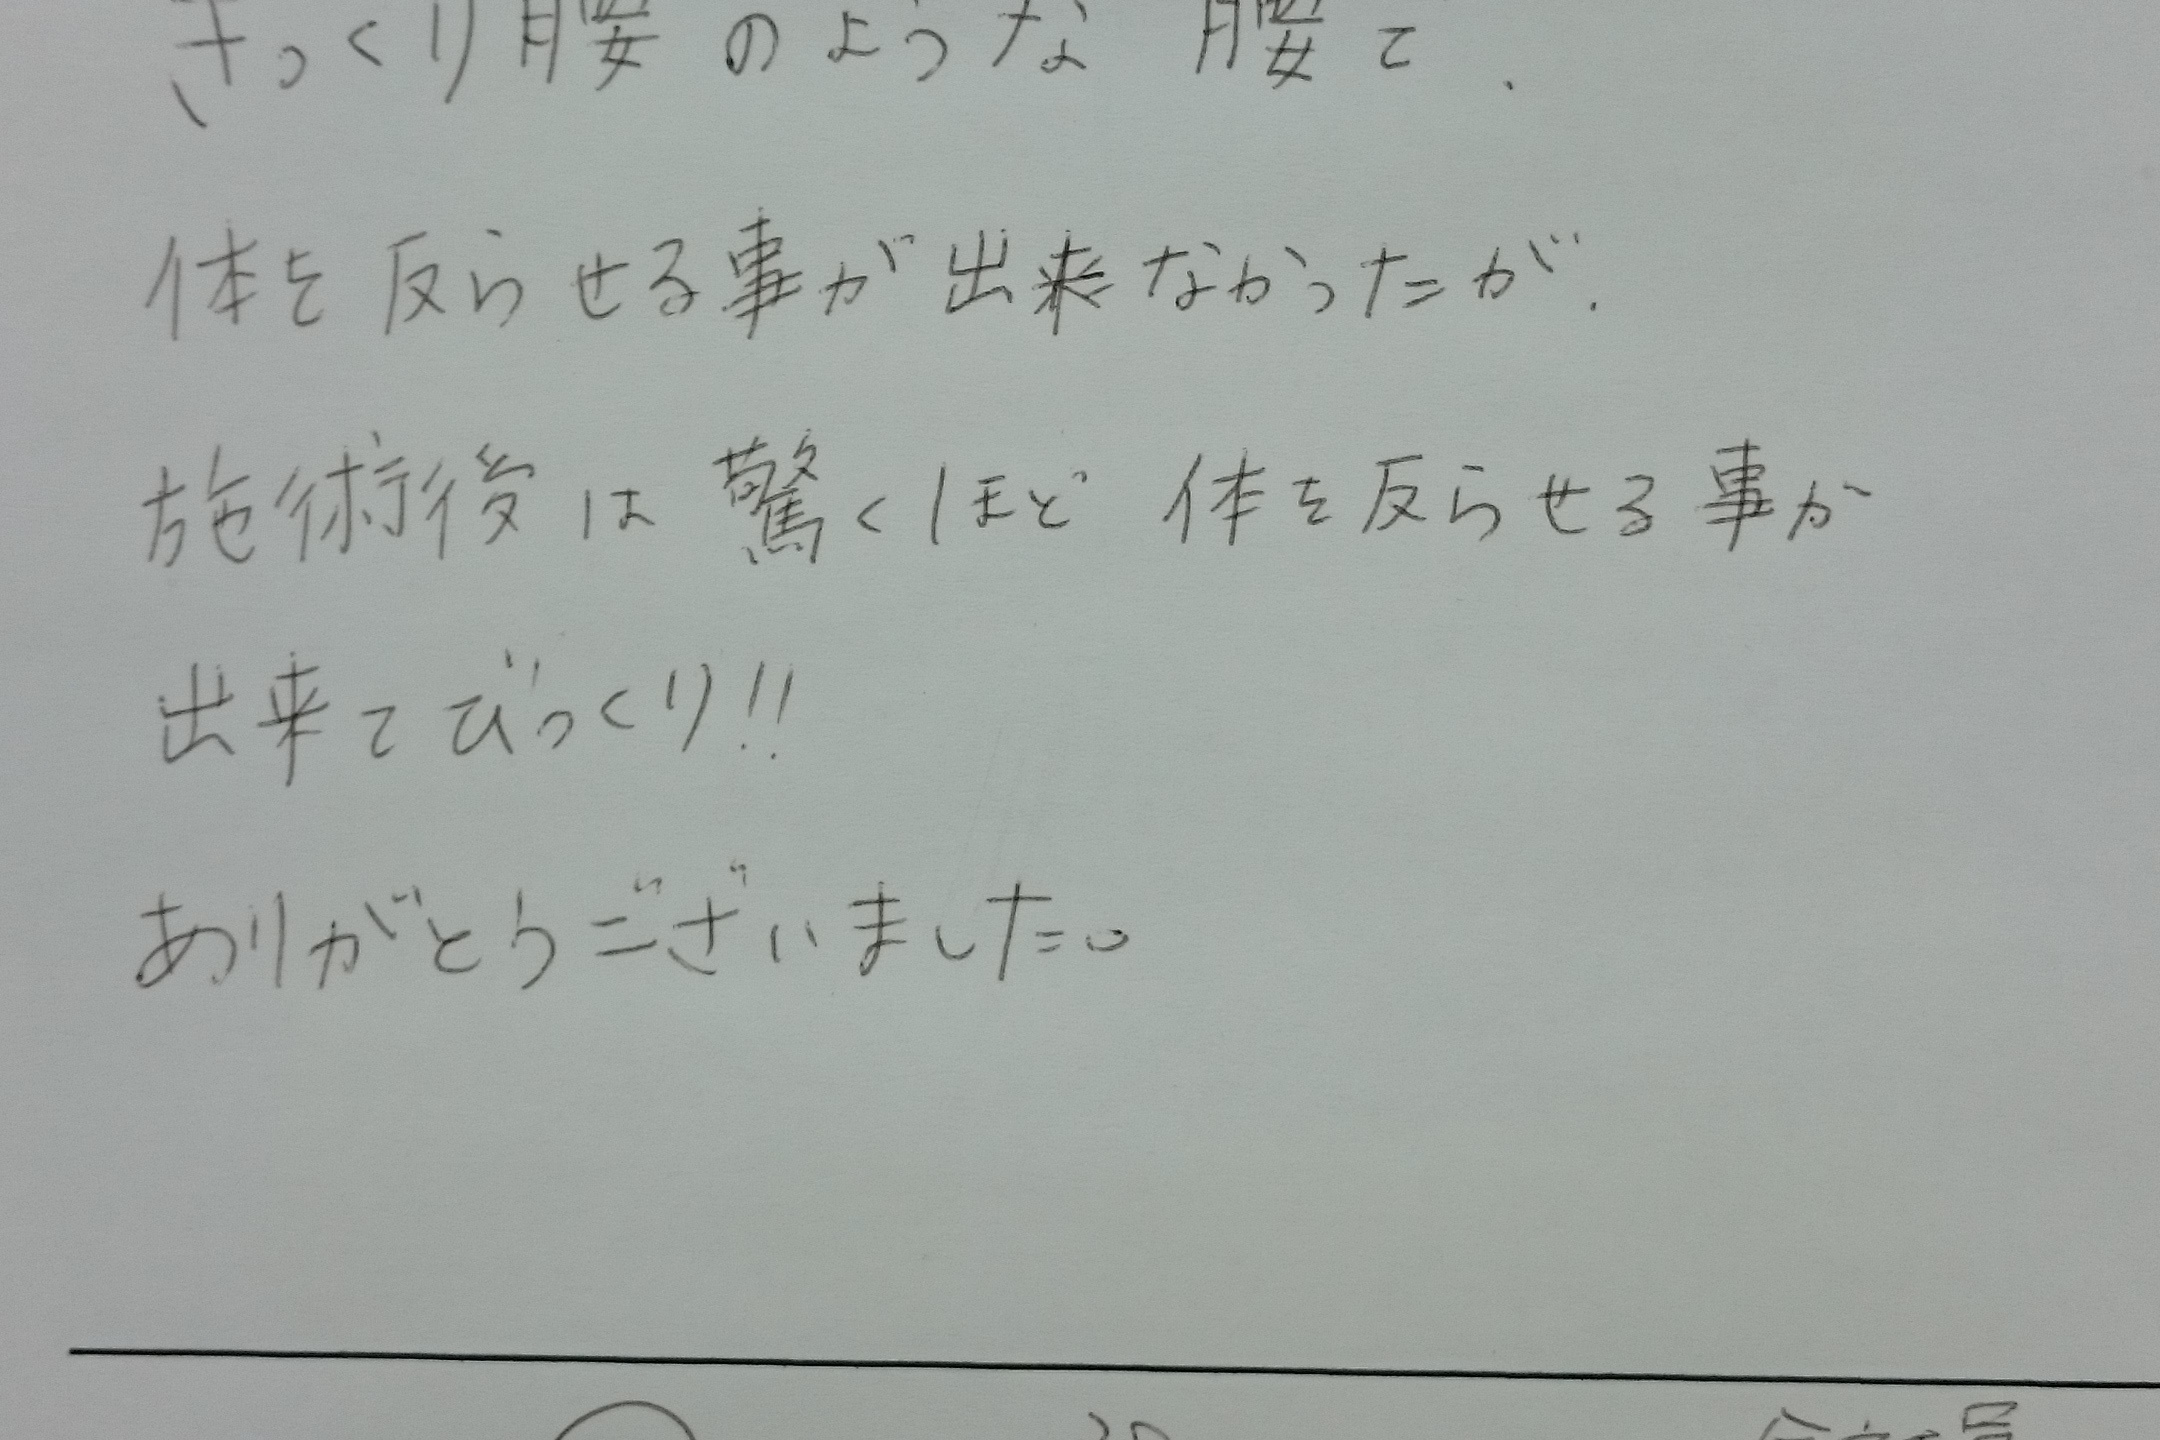 ぎっくり腰のような腰で、
体を反らせる事が出来なかったが、
施術後は驚くほど体を反らせる事が
出来てびっくり!!
ありがとうございました。